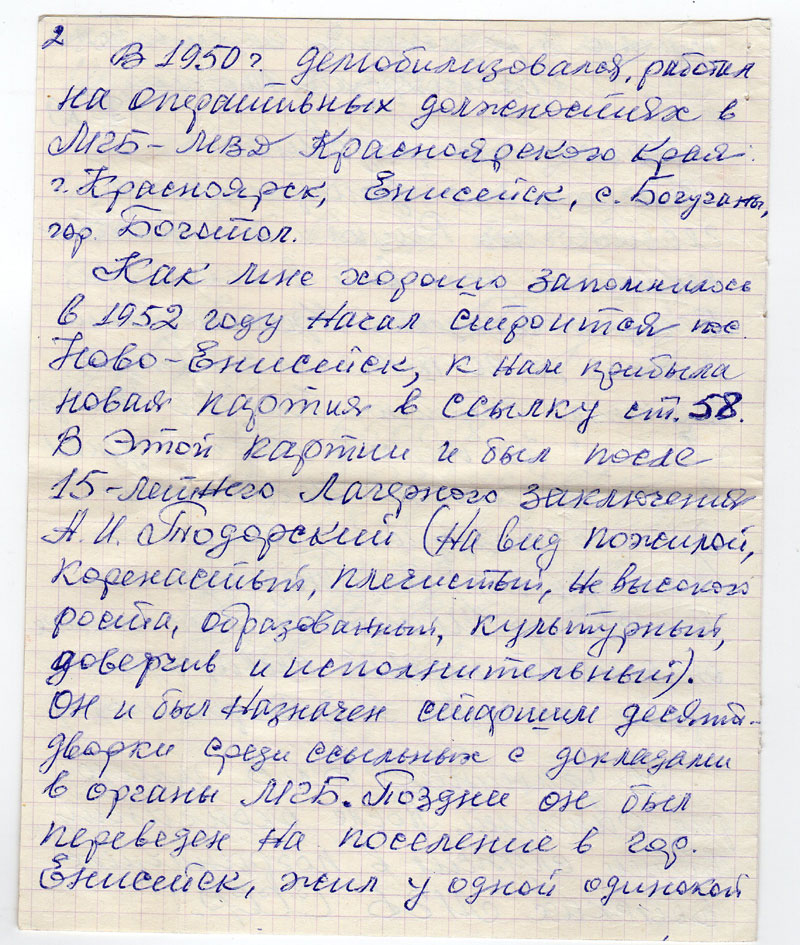 2
В 1950 г. демобилизовался, работал
на оперативных должностях в
МГБ-МВД Красноярского края.
г. Красноярск, Енисейск, с. Богучаны,
гор. Боготол.
Как мне хорошо запомнилось
в 1952 году начал строится пос
Ново-Енисейск, к нам прибыла
новая партия в ссылку ст. 58.
В этой партии и был после
15-летнего лагерного заключения
А. И. Тодорский (на вид пожилой,
коренастый, плечистый, не высокого
роста, образованный, культурный,
доверчив и исполнительный).
Он и был назначен старшим десяти-
дворки среди ссыльных с докладами
в органы МГБ. Поздне он был
переведен на поселение в гор.
Енисейск, жил у одной одинокой